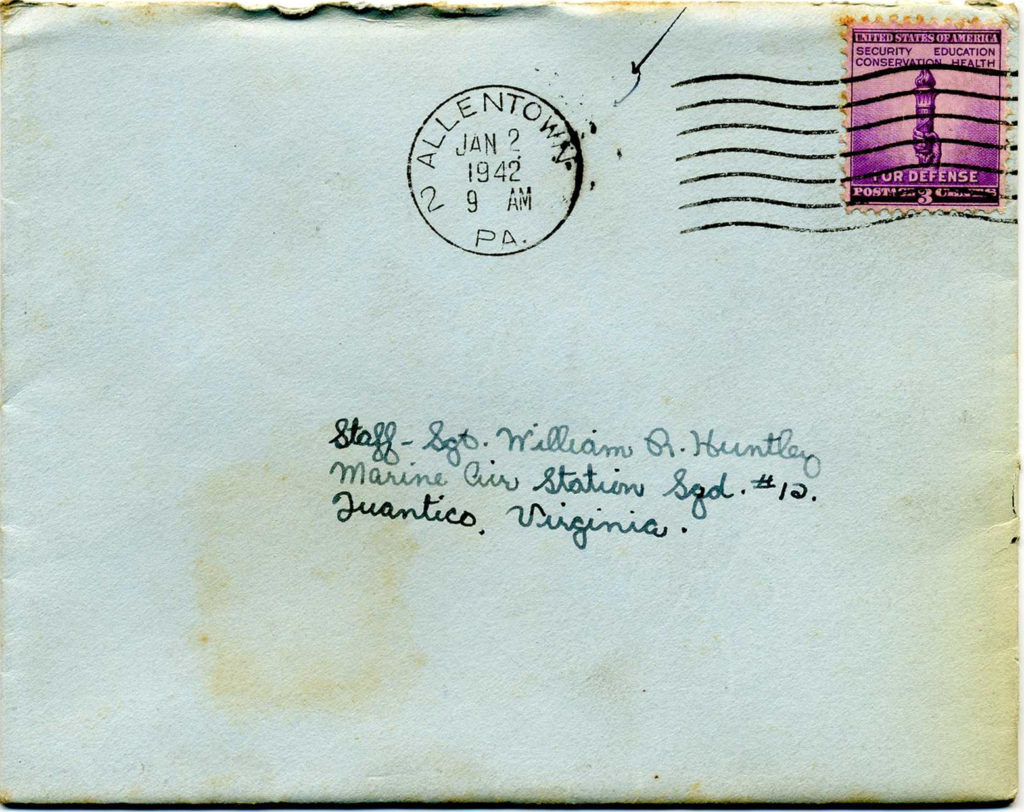 ALLENTOWN
JAN 2
1942
9 AM
2
PA.
UNITED STATES OF AMERICA
SECURITY EDUCATION
CONSERVATION HEALTH
FOR DEFENSE
POSTAGE 3 CENTS
Staff-Sgt. William R. Huntley
Marine Air Station Sqd. #12.
Quantico, Virginia.